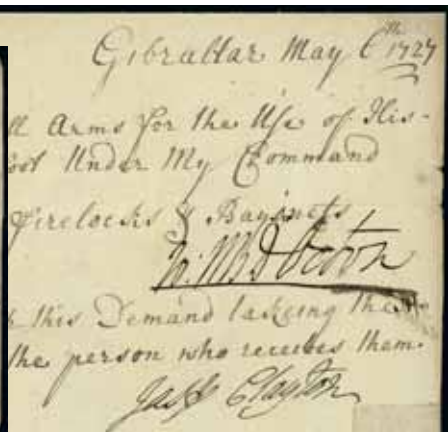 Gibraltar May 6th 1727
ll Arms for the Use of His
oot Under My Command
Firelocks & Bayinets
this Demand takeing the
the person who receives them.
Jasp Clayton